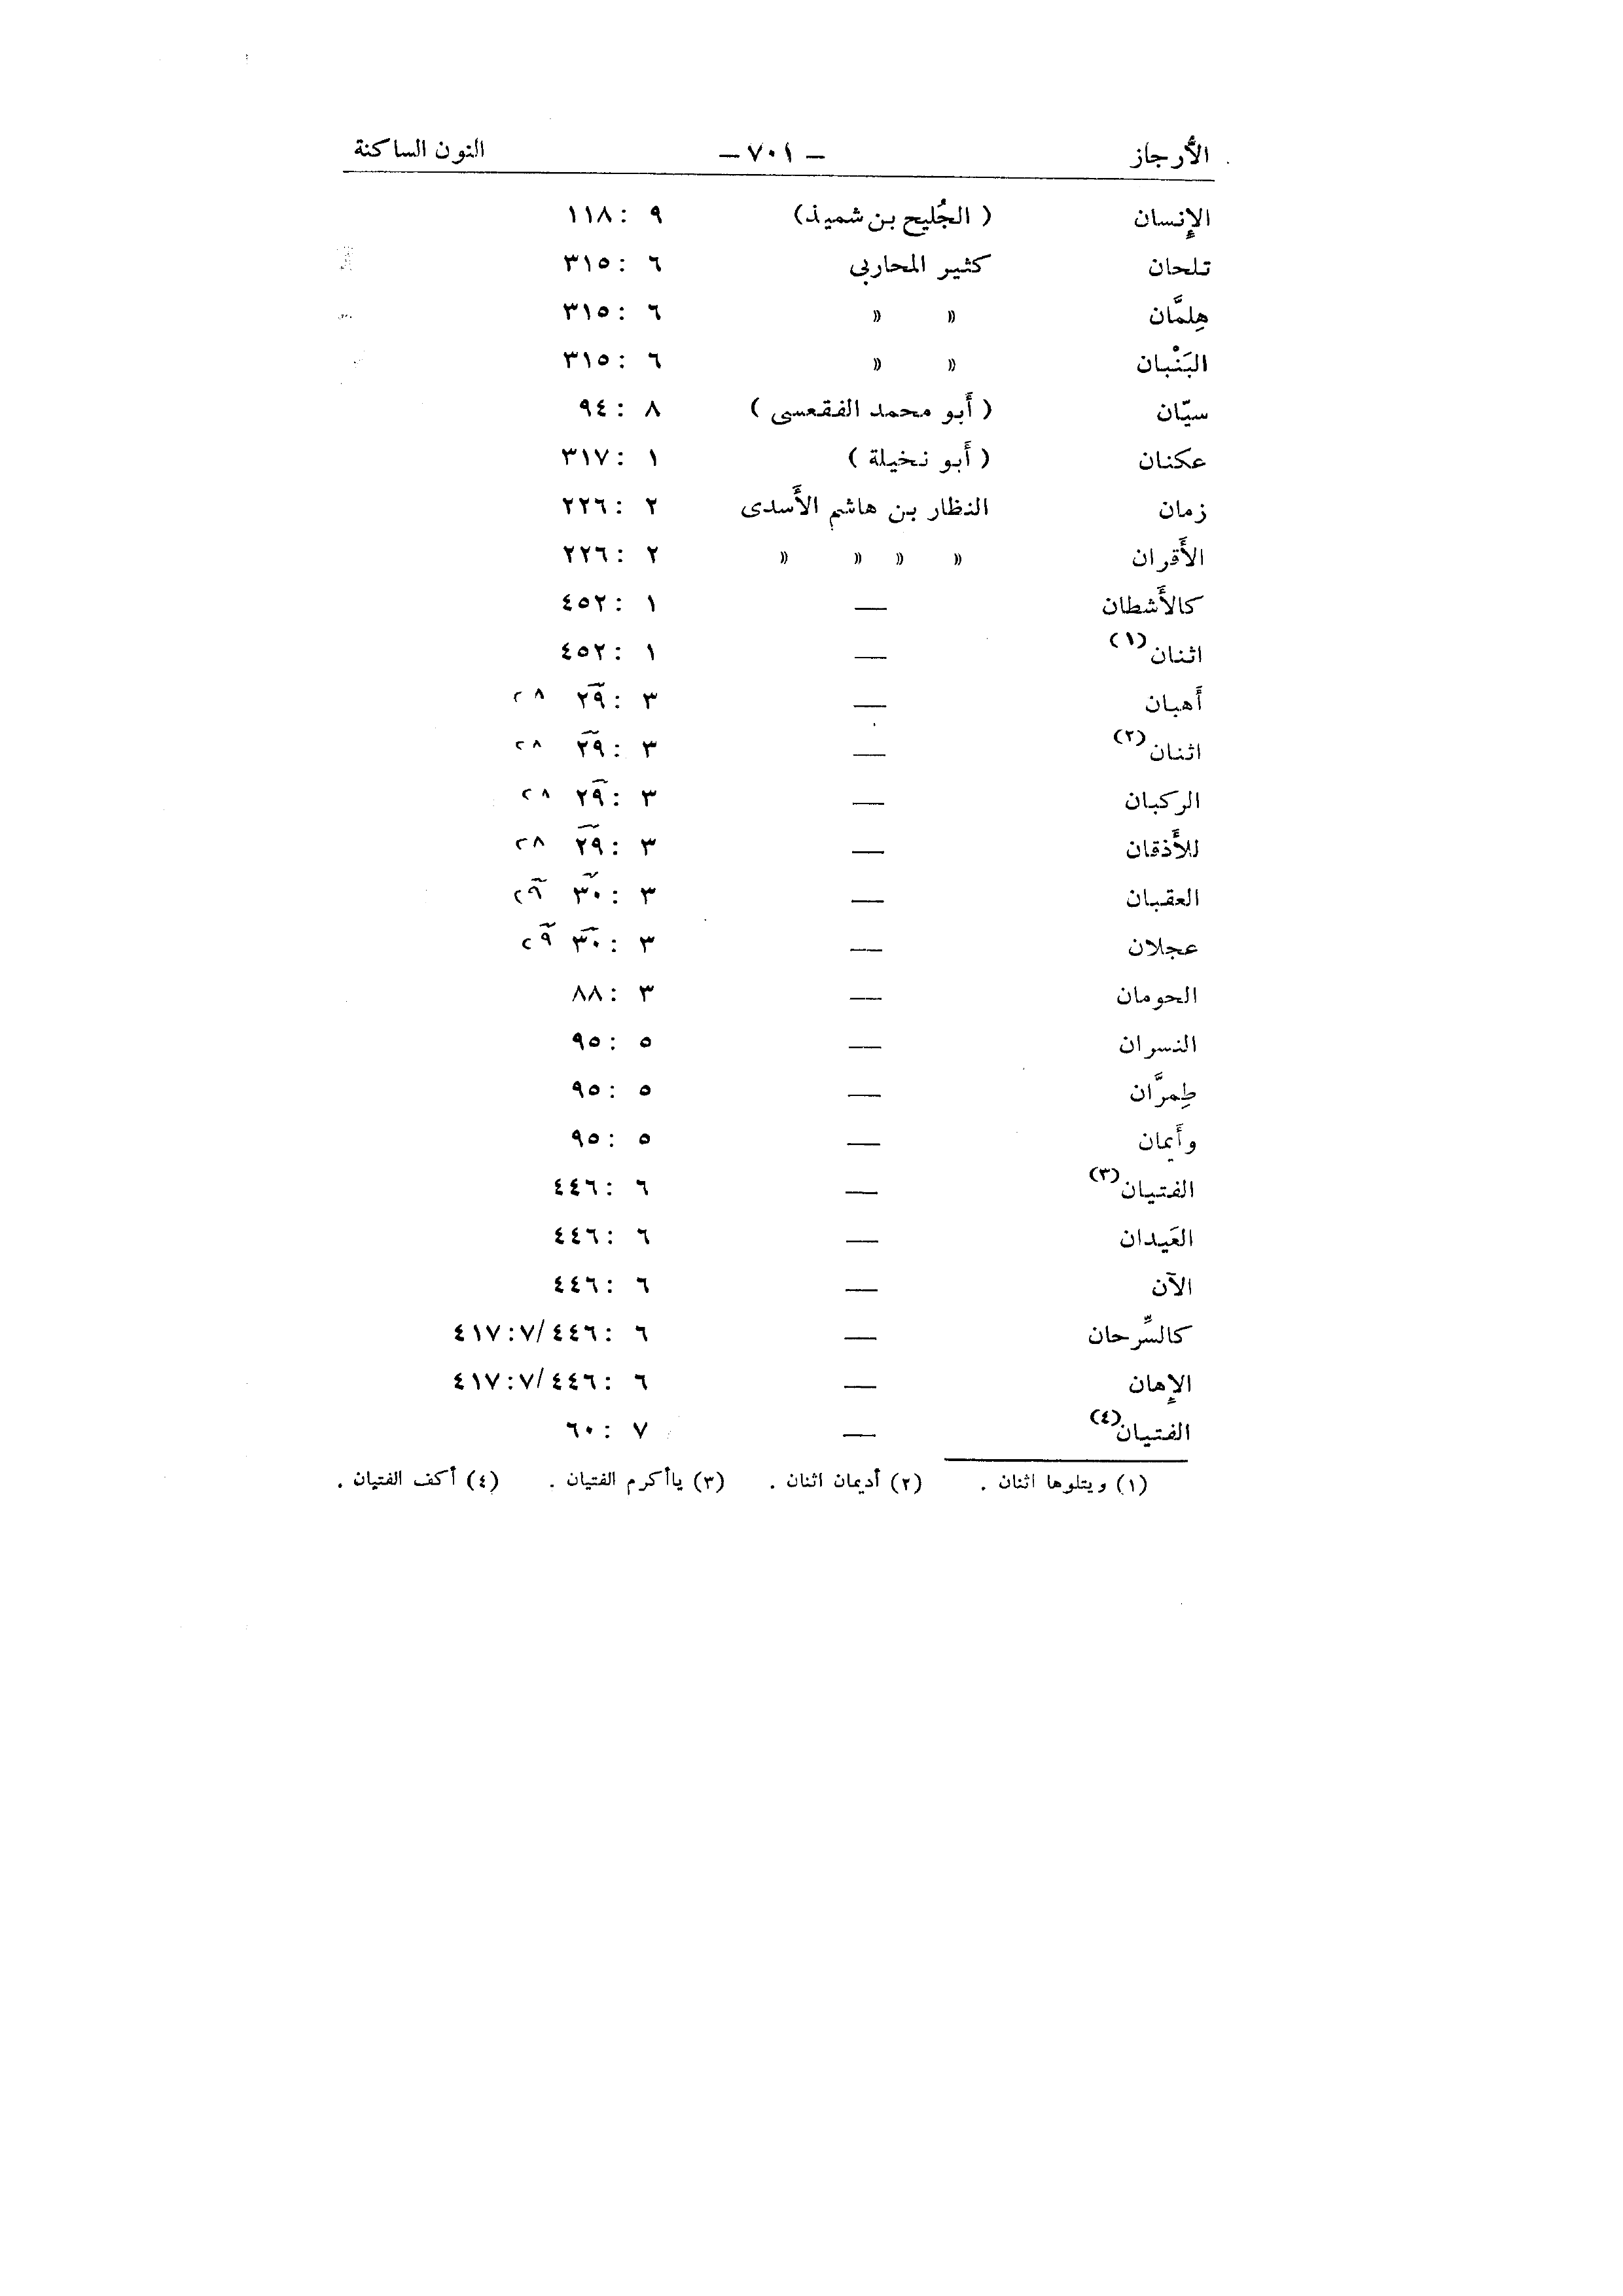 الأرجاز — ٧٠١ — النون الساكنة
الإنسان ( الجُليح بن شميذ) ٩ : ١١٨
تلحان كثير المحاربى ٦ : ٣١٥
هِلمَّان » » ٦ : ٣١٥
البَنْبان » » ٦ : ٣١٥
سيّان ( أَبو محمد الفقعسى ) ٨ : ٩٤
عكنان ( أَبو نخيلة ) ١ : ٣١٧
زمان النظار بن هاشم الأَسدى ٢ : ٢٢٦
الأَقران » » » » ٢ : ٢٢٦
كالأَشطان — ١ : ٤٥٢
اثنان(١) — ١ : ٤٥٢
أَهبان — ٣ : ٢٩ ٢٨
اثنان(٢) — ٣ : ٢٩ ٢٨
الركبان — ٣ : ٢٩ ٢٨
للأَذقان — ٣ : ٢٩ ٢٨
العقبان — ٣ : ٣٠ ٢٩
عجلان — ٣ : ٣٠ ٢٩
الحومان — ٣ : ٨٨
النسران — ٥ : ٩٥
طِمرَّان — ٥ : ٩٥
وأَيمان — ٥ : ٩٥
الفتيان(٣) — ٦ : ٤٤٦
العَيدان — ٦ : ٤٤٦
الآن — ٦ : ٤٤٦
كالسِّرحان — ٦ : ٤٤٦/٧ : ٤١٧
الإهان — ٦ : ٤٤٦/٧ : ٤١٧
الفتيان(٤) — ٧ : ٦٠
(١) ويتلوها اثنان . (٢) أديمان اثنان . (٣) ياأكرم الفتيان . (٤) أكف الفتيان .